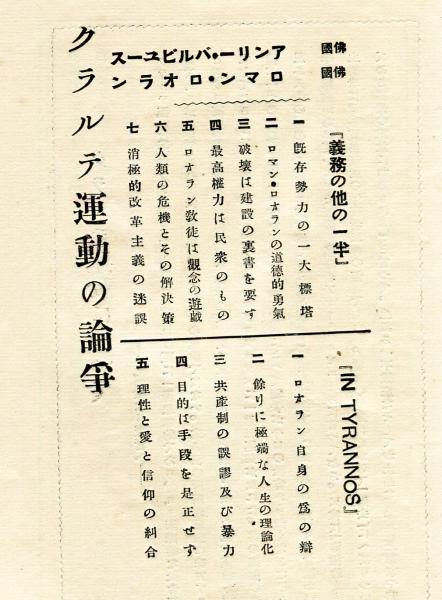 佛國 アンリー•バルビユース
佛國 ロマン•ロオラン
『義務の他の一半』
一 旣存勢力の一大標塔
二 ロマン•ロオランの道德的勇氣
三 破壞は建設の裏書を要す
四 最高權力は民衆のもの
五 ロオラン敎徒は觀念の遊戯
六 人類の危機とその解決策
七 消極的改革主義の迷誤
『IN TYRANNoS』
一 ロオラン自身の爲の辯
二 餘りに極端な人生の理論化
三 共產制の誤謬及び暴力
四 目的は手段を是正せず
五 理性と愛と信仰の糾合
クラルテ運動の論爭